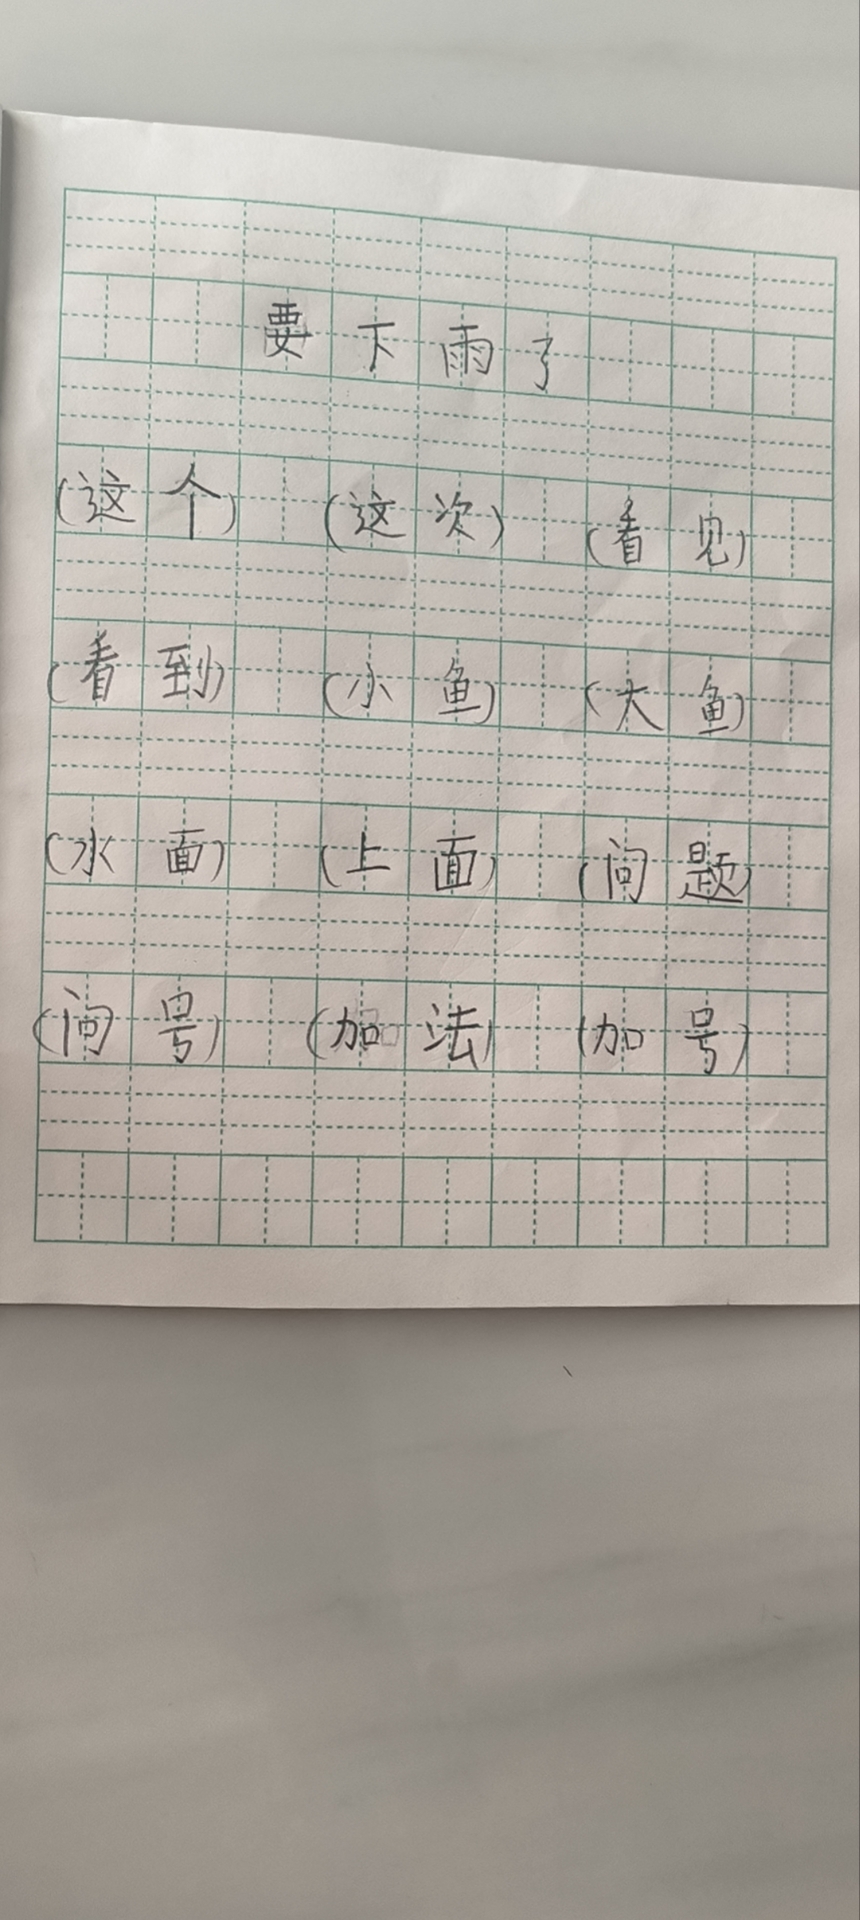 要下雨了
(这个) (这次) (看见)
(看到) (小鱼) (大鱼)
(水面) (上面) (问题)
(问号) (加法) (加号)